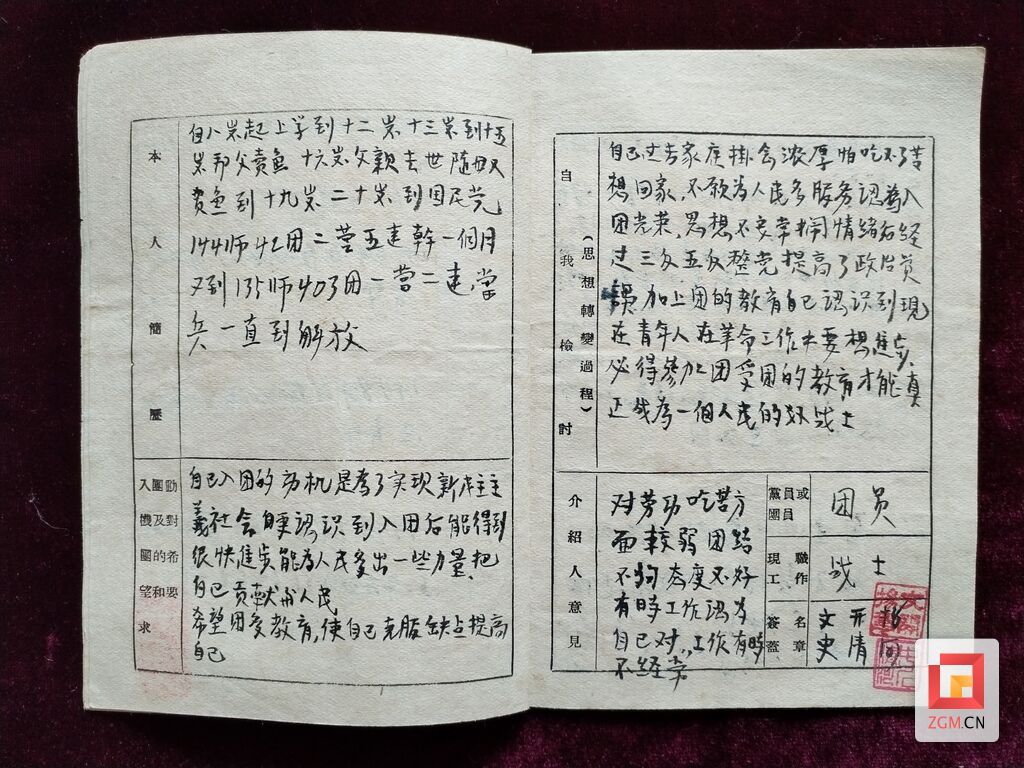 本人簡歷
自八岁起上学到十二岁十三岁到十五
岁邦父卖鱼 十六岁父親去世随母又
賣鱼到十九岁二十岁到国民党
144师42团二营五連幹一個月
又到135师403团一营二連,當
兵一直到解放
入團動
機及對
團的希
望和要
求
自已入团的动机是為了实现新民主主
義社会 認识到入团后能得到
很快進步能為人民多出一些力量,把
自己贡献於人民
希望团多教育,使自己克服缺点提高
自己
自我檢討
(思想轉變過程)
自己过去家庭掛念浓厚怕吃不了苦
想回家,不願为人民多服务認為入
团光荣,思想不 常闹情绪后经
过三反五反整党提高了政治
加上团的教育自己認识到現
在青年人在革命工作中要想進步,
必得參加团受团的教育才能真
正成為一個人民的好战士
介紹人意見
对劳动吃苦方
面較弱团结
不夠态度不好
有時工作認为
自己对,工作有時
不经常
黨員或
團員
团员
現職
工作
战士
簽名
蓋章
文开
史清
ZGM.CN